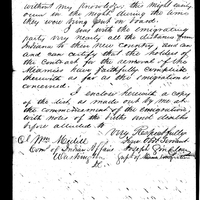 without my knowledge, this might easily
occur in the night during the time
they were being sent on board.
I was with the emigrating
party very nearly all the distance from
Indiana to their new country, and can
and now certify that the holders of
the Contract for the removal of the
Miamies have faithfully complied
therewith so far as the emigration is
concerned.
I enclose herewith a copy
of the list as made out by me at
the commencement of the emigration,
with notes of the births and deaths
before alluded to.
Very Respectfully
Your Obt Servant
Joseph Sinclear
Wm Medill
Com of Indian Affairs
Washington